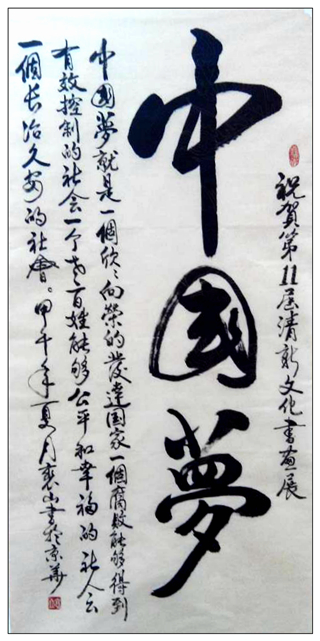 祝賀第11届清新文化書畫展
中國夢
中國夢就是一個欣〻向榮的發達国家一個腐敗能够得到
有效控制的社会一个老百姓能够公平和幸福的社会
一個长治久安的社會。甲午年夏月山書於京華